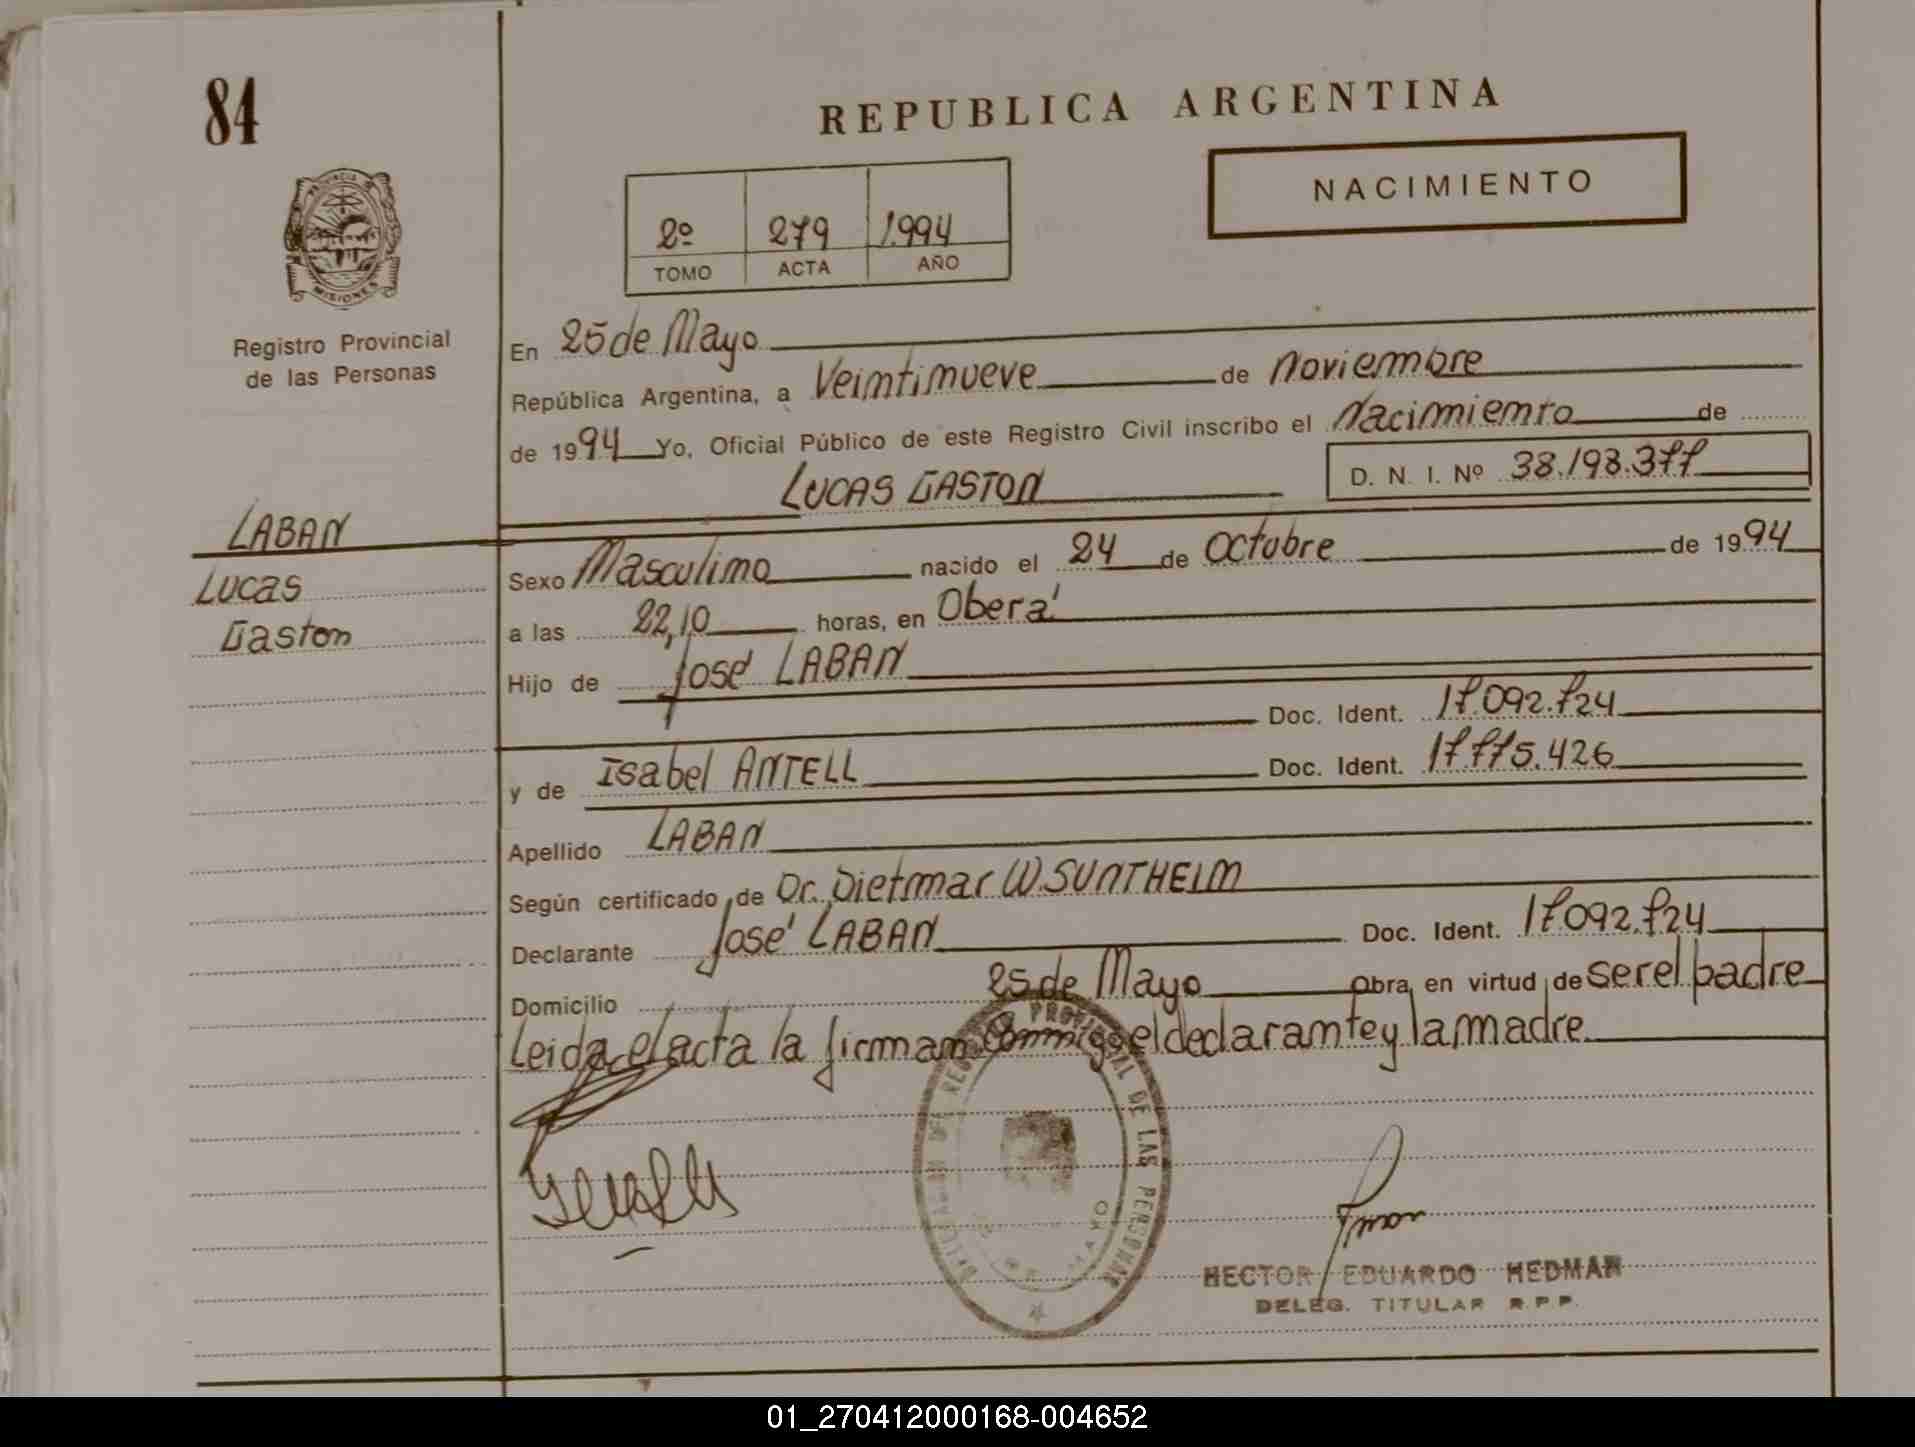 84
REPUBLICA ARGENTINA
NACIMIENTO
2º 279 1.994
TOMO ACTA AÑO
PROVINCIA DE
MISIONES
Registro Provincial
de las Personas
En 25 de Mayo
República Argentina, a Veintinueve de Noviembre
de 1994 Yo, Oficial Público de este Registro Civil inscribo el Nacimiento de
LUCAS GASTON D. N. I. Nº 38.198.377
LABAN
Lucas
Gaston
Sexo Masculino nacido el 24 de Octubre de 1994
a las 22,10 horas, en Oberá
Hijo de José LABAN
Doc. Ident. 17.092.724
y de Isabel ANTELL Doc. Ident. 17.775.426
Apellido LABAN
Según certificado de Dr. Dietmar W. SUNTHEIM
Declarante José LABAN Doc. Ident. 17.092.724
Domicilio 25 de Mayo Obra, en virtud de ser el padre
Leida el acta la firman conmigo el declarante y la madre
PROVINCIAL DE LAS PERSONAS
MAYO
HECTOR EDUARDO HEDMAN
DELEG. TITULAR R.P.P.
01_270412000168-004652